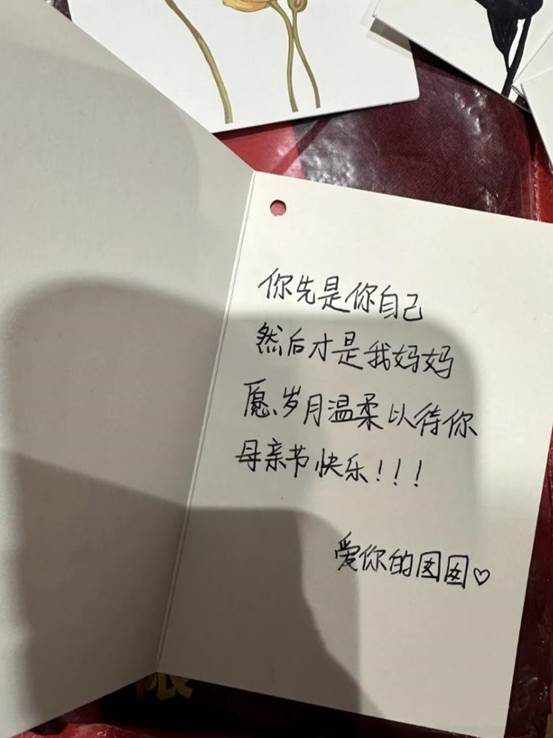 你先是你自己
然后才是我妈妈
愿岁月温柔以待你
母亲节快乐!!!
爱你的囡囡♡